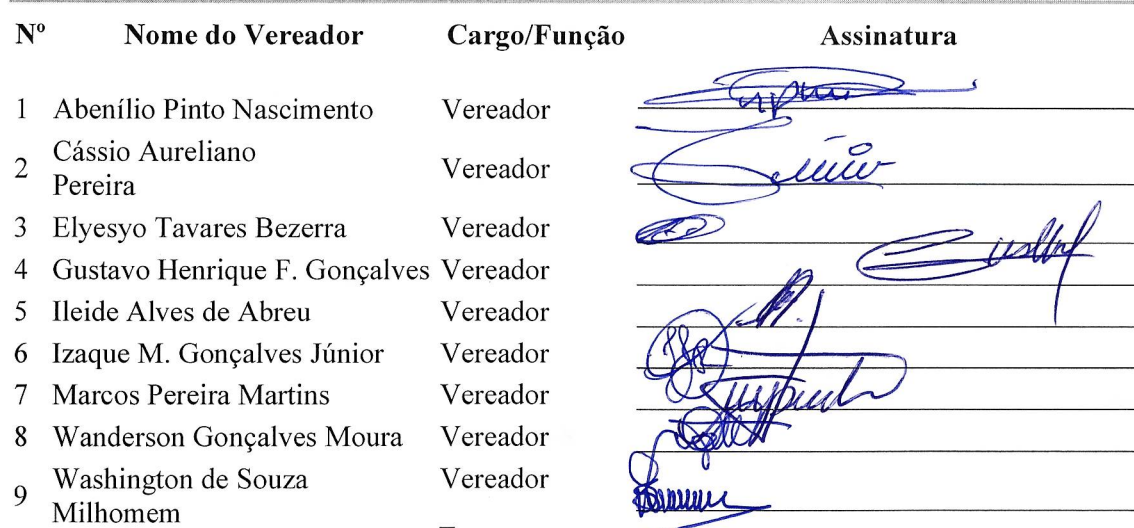 Nº Nome do Vereador Cargo/Função Assinatura
1 Abenílio Pinto Nascimento Vereador
2 Cássio Aureliano Pereira Vereador
3 Elyesyo Tavares Bezerra Vereador
4 Gustavo Henrique F. Gonçalves Vereador
5 Ileide Alves de Abreu Vereador
6 Izaque M. Gonçalves Júnior Vereador
7 Marcos Pereira Martins Vereador
8 Wanderson Gonçalves Moura Vereador
9 Washington de Souza Milhomem Vereador